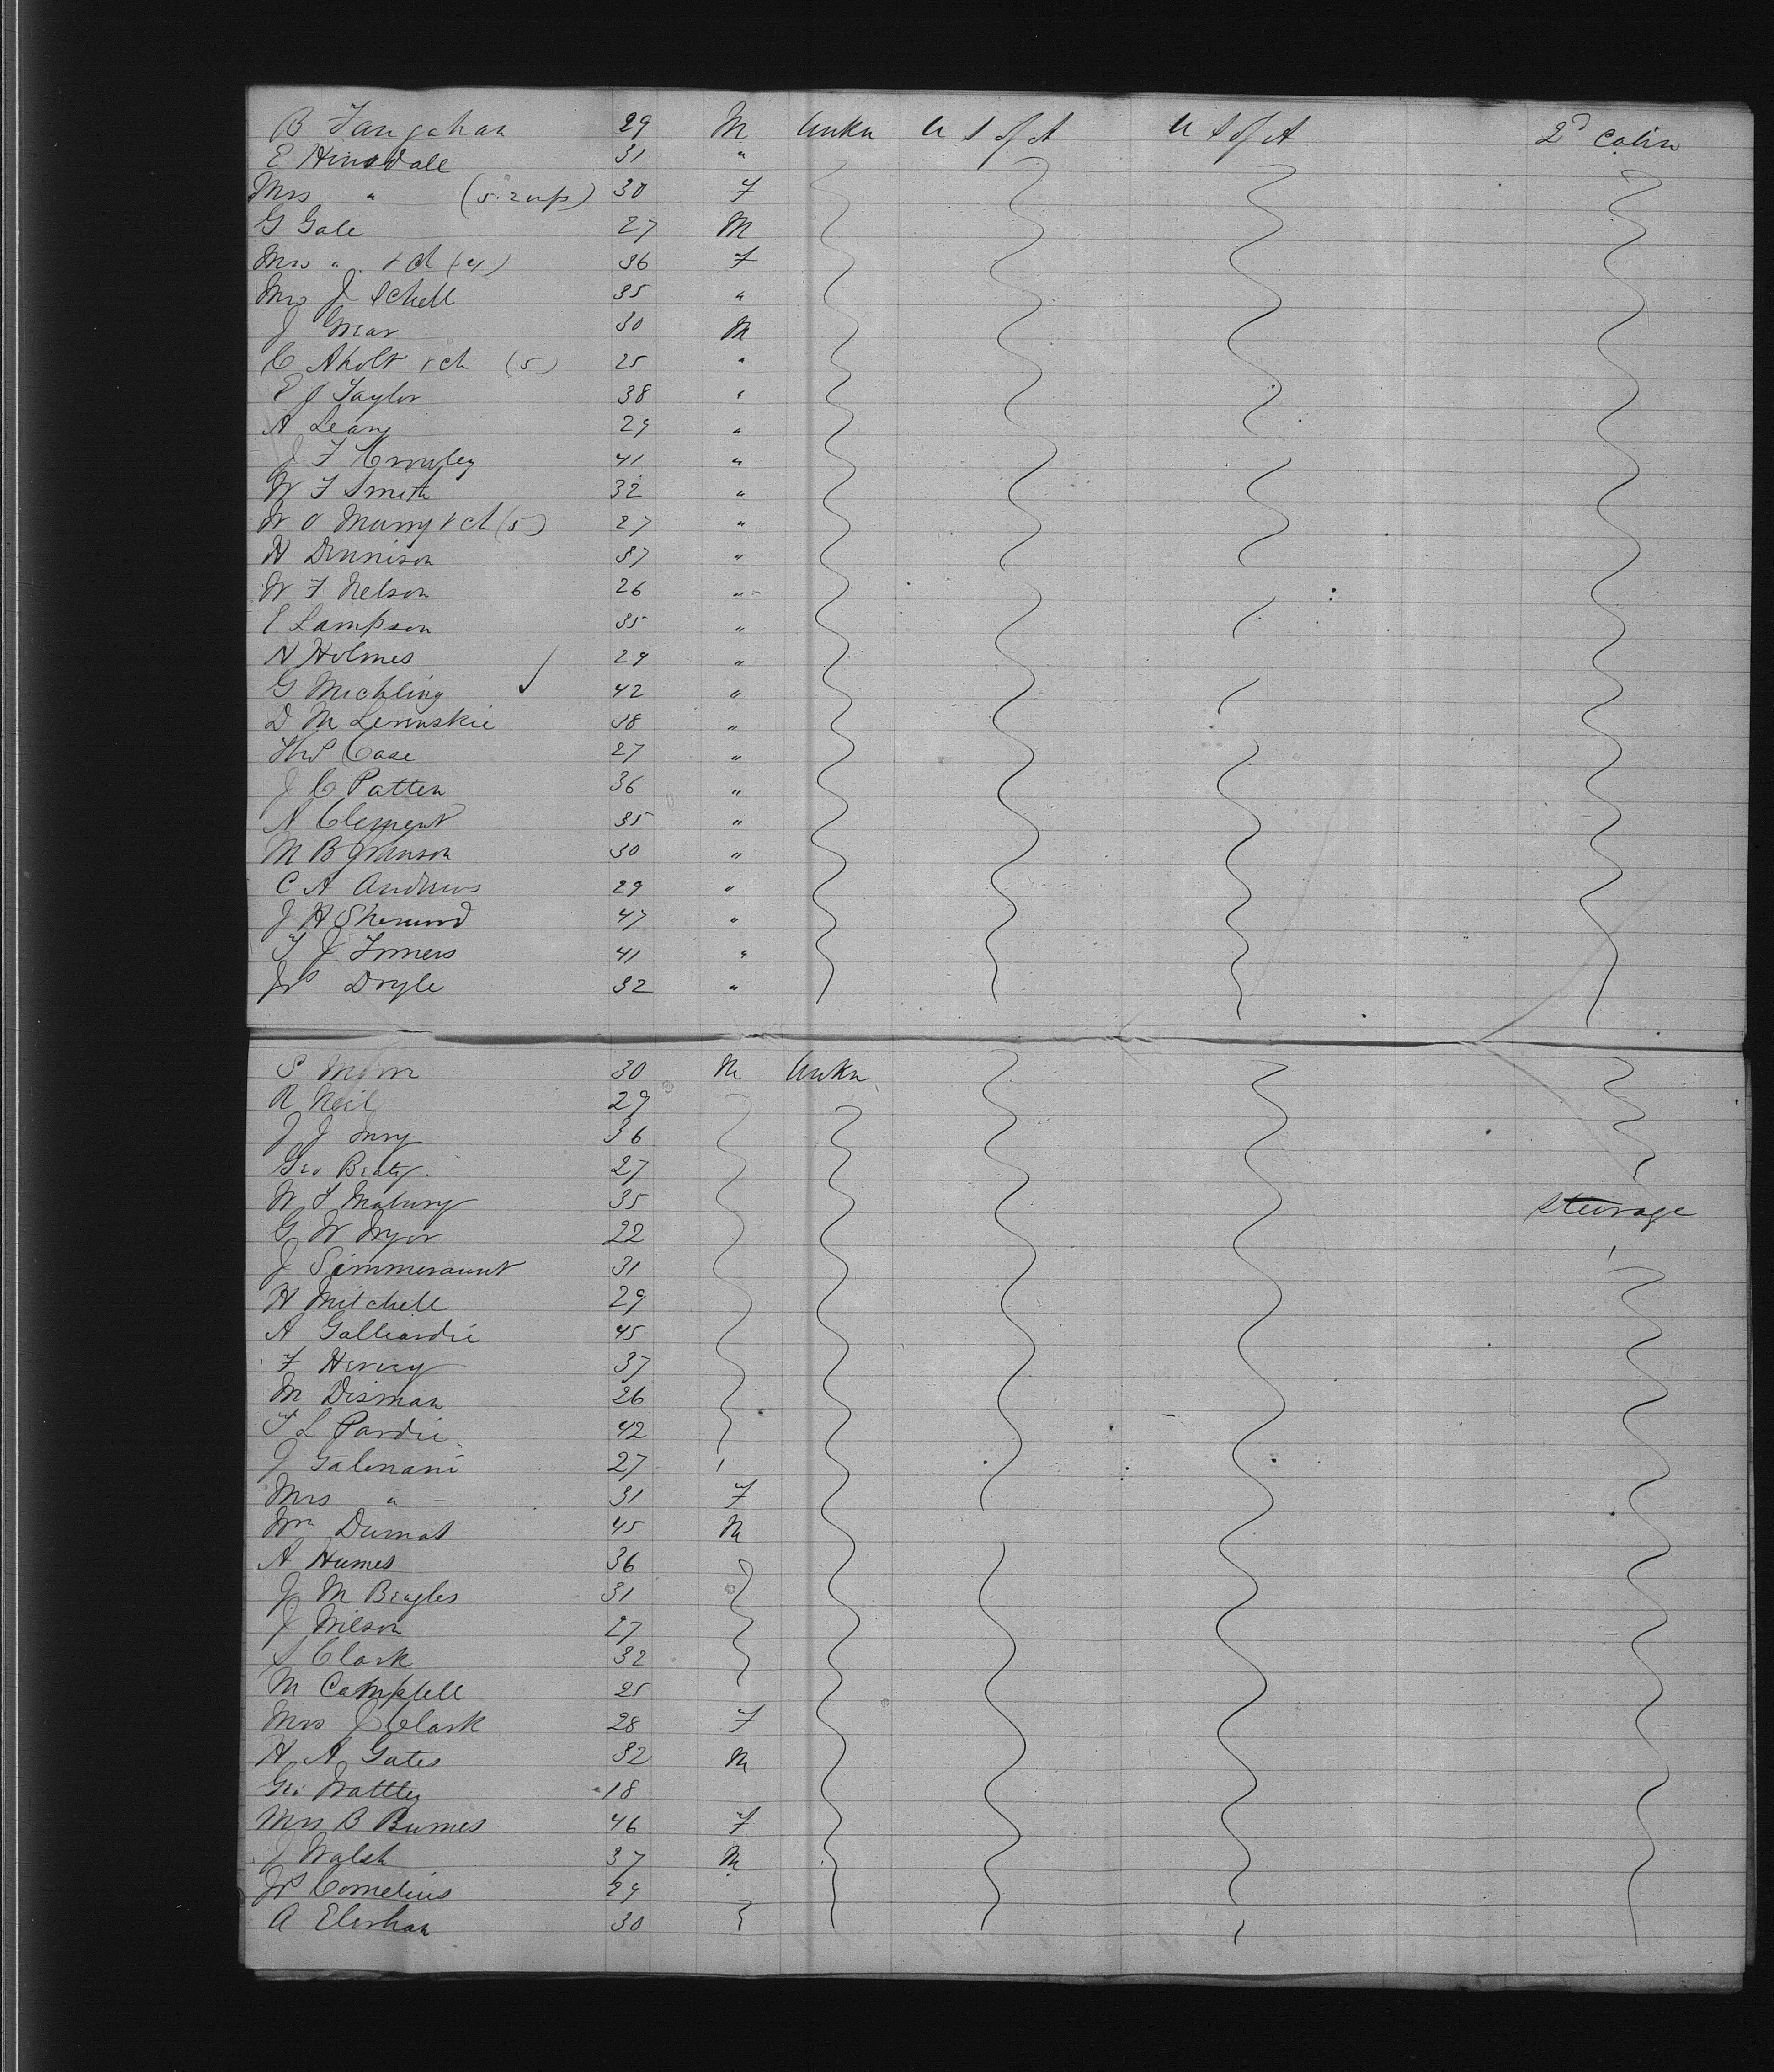 B Faugahan 29 M Unkn U S of A U S of A 2d Cabin
E Hinsdale 31 "
Mrs " (5. 2 inf) 30 F
G Gale 27 M
Mrs " & ch (4) 36 F
Mrs J Schell 35 "
J Grear 30 M
C Aholt & ch (5) 25 "
E J Taylor 38 "
A Leary 29 "
J F Crowley 41 "
W F Smith 32 "
W O Murry & ch (5) 27 "
H Dennison 37 "
W F Nelson 26 "
E Lampson 35 "
N Holmes 29 "
G Michling 42 "
D M Levinskie 38 "
Case 27 "
J C Patten 36 "
A Clement 35 "
M B Johnson 30 "
C A Andrews 29 "
J H Sherwood 47 "
T J Somers 41 "
Jos Doyle 32 "
S 30 M Unkn
R Neil 29
J J 36
Geo Beaty 27
W F Mabury 35 Steerage
G W Pryor 22
J Simmeraunt 31
H Mitchell 29
A Galliardie 45
F Hervey 37
M Disman 26
T L Pardie 42
J Galenani 27
Mrs " 31 F
Wm Dumas 45 M
A Humes 36
J M Beagles 31
J Wilson 27
S Clark 32
M Campbell 25
Mrs J Clark 28 F
H A Gates 32 M
Geo Wattley 18
Mrs B Burnes 46 F
J Walsh 37 M
Jos Cornelius 29
A Elerhan 30